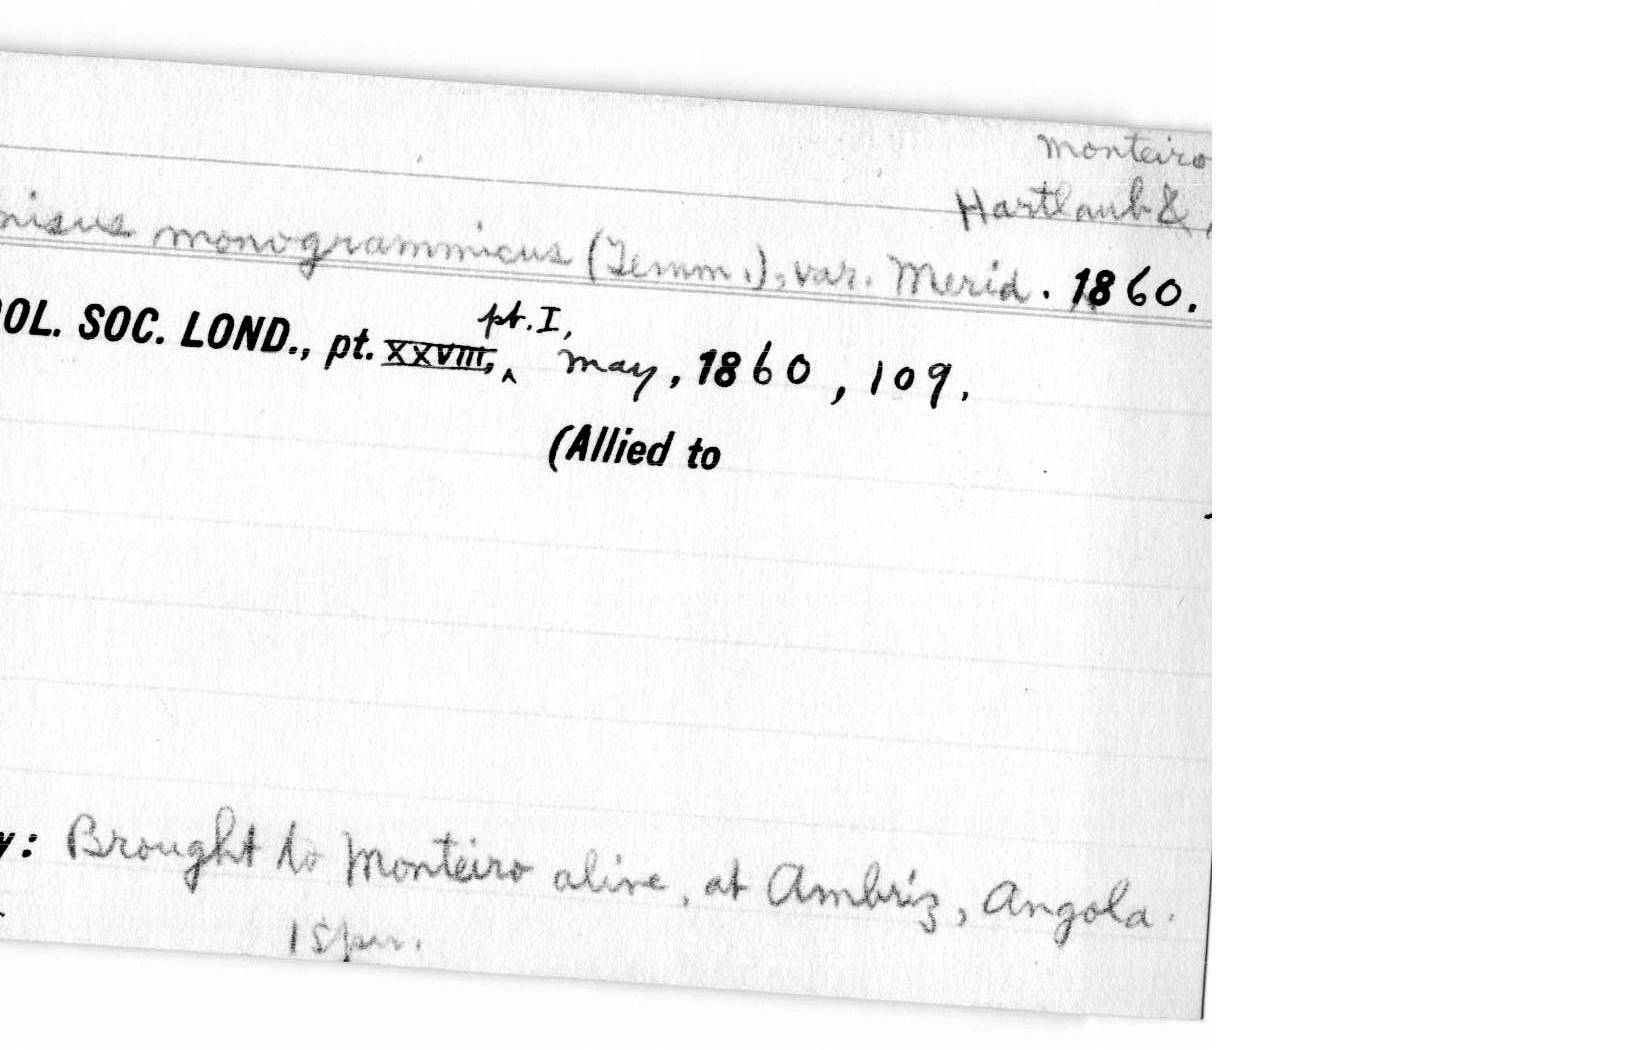 Monteiro
Hartlaub &
nisus monogrammicus (Temm.), var. Merid. 1860.
OL. SOC. LOND., pt. XXVIII, pt. I, May, 1860, 109.
(Allied to
y: Brought to Monteiro alive, at Ambriz, Angola.
1 spm.